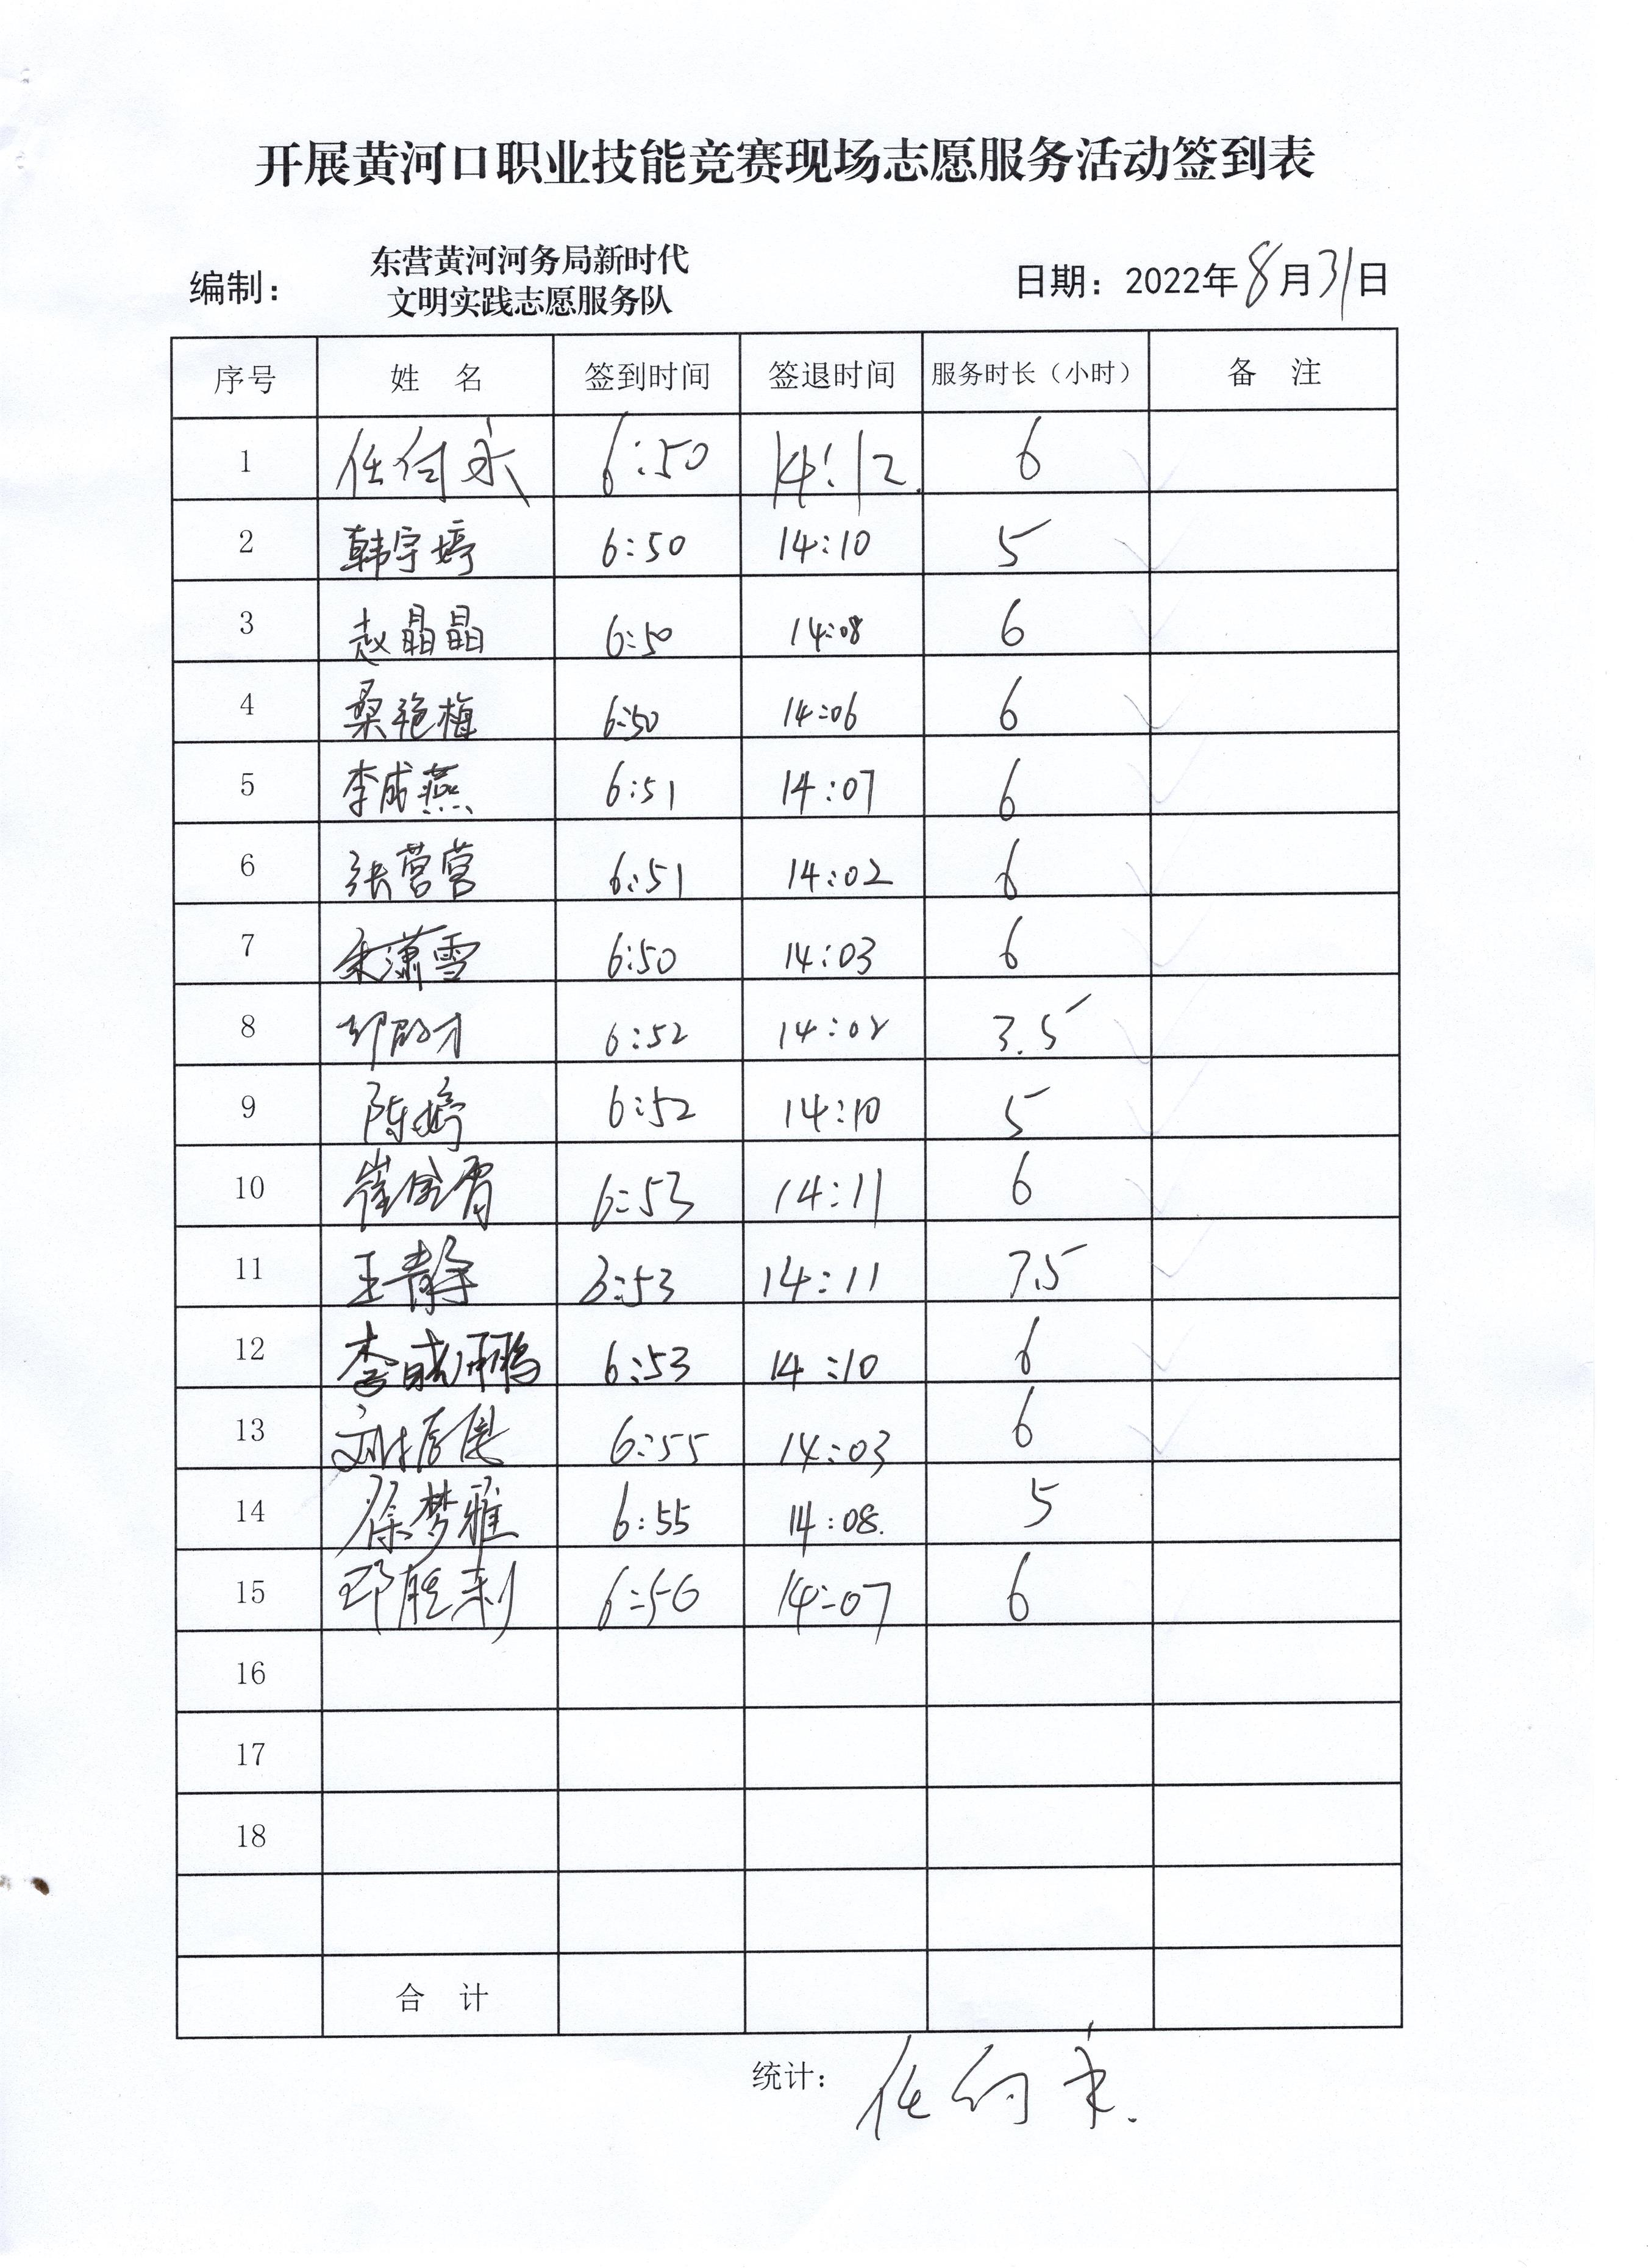 开展黄河口职业技能竞赛现场志愿服务活动签到表
编制： 东营黄河河务局新时代
文明实践志愿服务队
日期：2022年8月31日
序号 姓 名 签到时间 签退时间 服务时长（小时） 备 注
1 任何永 6:50 14:12 6
2 韩宇婷 6:50 14:10 5
3 赵晶晶 6:50 14:08 6
4 桑艳梅 6:50 14:06 6
5 李成燕 6:51 14:07 6
6 张营营 6:51 14:02 6
7 宋潇雪 6:50 14:03 6
8 6:52 14:08 3.5
9 陈婷 6:52 14:10 5
10 崔 6:53 14:11 6
11 王静 6:53 14:11 7.5
12 李 鹏 6:53 14:10 6
13 刘 6:55 14:03 6
14 徐梦雅 6:55 14:08. 5
15 邓胜利 6:56 14:07 6
16
17
18
合 计
统计： 任何永.